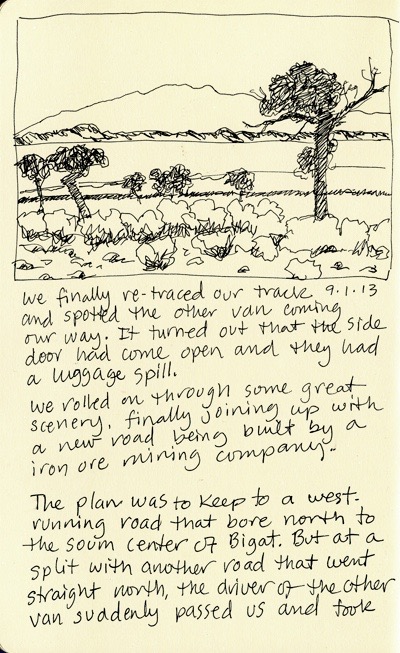 we finally re-traced our track 9.1.13
and spotted the other van coming
our way. It turned out that the side
door had come open and they had
a luggage spill.
we rolled on through some great
scenery, finally joining up with
a new road being built by a
iron ore mining company.
The plan was to keep to a west-
running road that bore north to
the soum center of Bigat. But at a
split with another road that went
straight north, the driver of the other
van suddenly passed us and took